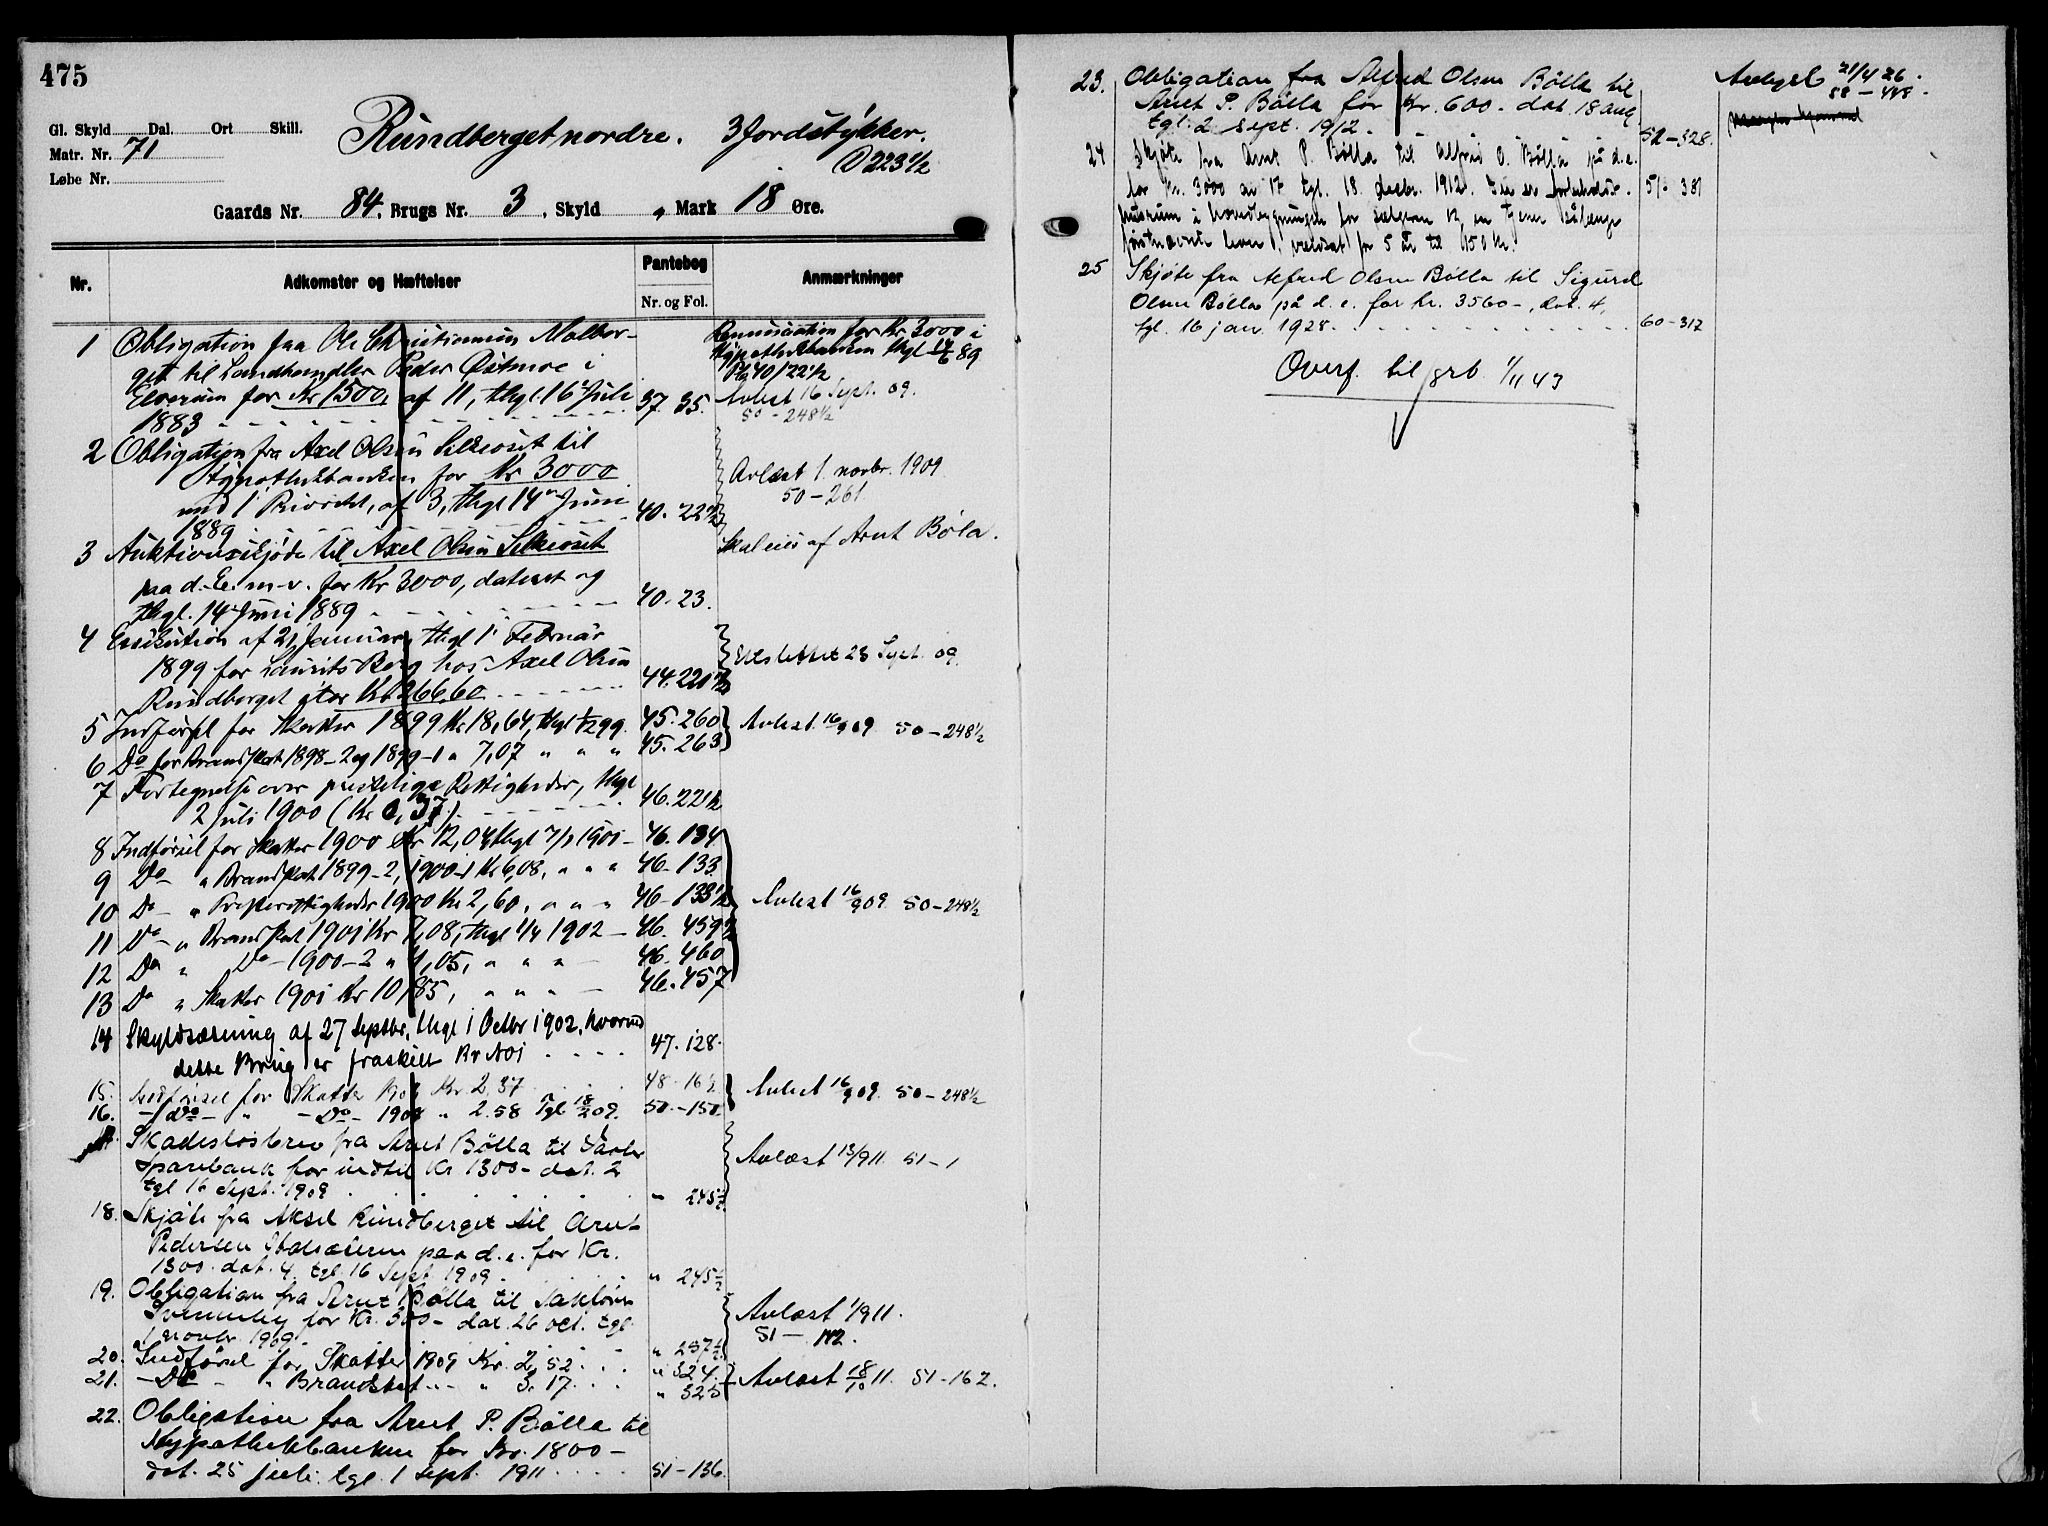 475
Gl. Skyld Dal. Ort Skill.
Matr. Nr. 71
Løbe Nr.
Rundberget nordre. 3 Jordstykker.
D 223 1/2
Gaards Nr. 84, Brugs Nr. 3, Skyld „ Mark 18 Øre.
Nr. Adkomster og Hæftelser Pantebog Anmærkninger
Nr. og Fol.
1 Obligation fra Ole Christiansen
get til Landhandler Peder Østmoe i
Elverum for Kr 1500, af 11, thgl. 16 Juli
1883 37. 35.
Renunciation for Kr 3000 i
Hypothekbanken thgl 14/6 89
Pb 40/22 1/2
Avlest 16 Sept. 09.
50-248 1/2
2 Obligation fra Axel Olsen til
Hypothekbanken for Kr 3000
med 1 Prioritet, af 3, thgl 14 Juni
1889 40. 22 1/2
Avlæst 1. novbr. 1909
50-261
3 Auktionsskjøde til Axel Olsen
paa d. E. m. v. for Kr 3000, dateret og
thgl. 14 Juni 1889 40. 23.
Skal eies af Arnt Bøla.
4 Exekution af 21 Januar, thgl 1 Februar
1899 for Laurits Berg hos Axel Olsen
Rundberget stor Kr 266,60 44. 221 1/2
Udslettet 28 Sept. 09.
5 Indførsel for Skatter 1899 Kr 18,64, thgl 1/2 99. 45. 260
6 Do for Brandskat 1898-2 og 1899-1 „ 7,07 „ „ „ 45. 263
Avlest 16/9 09 50-248 1/2
7 Fortegnelse over prestelige Rettigheder, thgl
2 Juli 1900 (Kr 0,37) 46. 22 1/2
8 Indførsel for Skatter 1900 Kr 12,04 thgl 7/1 1901 - 46. 134
9 Do - „ Brandskat 1899-2, 1900-1 Kr 6,08, „ „ „ 46. 133
10 Do - „ Presterettigheder 1900 Kr 2,60, „ „ „ 46-133 1/2
11 Do - „ Brandskat 1901 Kr 7,08, thgl 1/4 1902 - 46. 459 1/2
12 Do „ Do - 1900-2 „ 4,05, „ „ „ - 46. 460
13 Do „ Skatter 1901 Kr 10,85, „ „ „ - 46. 457
Avlest 16/9 09. 50-248 1/2
14 Skyldsætning af 27 Septbr, thgl 1 Octbr 1902, hvorved
dette Brug er fraskilt Br No 1 47. 128.
15. Indførsel for Skatter Kr. 2.37 48-16 1/2
16. - Do - „ - Do - 1908 „ 2.58 Tgl 18/2 09. 50.-150.
Avlest 16/9 09. 50-248 1/2
Skadesløsbrev fra Arnt Bølla til
Sparebank for indtil Kr 1300- dat. 2
tgl 16 Sept. 1909 „ 245 1/2
Avlæst 13/9 11. 51-1
18. Skjøte fra Aksel Rundberget til Arnt
Pedersen paa d. e. for Kr.
1300. dat. 4. tgl. 16 Sept 1909. „ 245 1/2
19. Obligation fra Arnt Bølla til
for Kr. 300- dat. 26 oct. tgl.
1 novbr. 1909 „ 257 1/2
Avlæst 1/9 11.
51- 142.
20. Indførsel for Skatter 1909 Kr. 2,52 „ 324.
21. - Do - „ Brandskat „ 3.17. „ 325
Avlæst 18/10 11. 51-162.
22. Obligation fra Arnt P. Bølla til
Hypothekbanken for Kr. 1800-
dat. 25 juli. tgl. 1 Sept. 1911 51-136.
23. Obligation fra Alfred Olsen Bølla til
Arnt P. Bølla for Kr. 600- dat 18 aug
tgl. 2 Sept. 1912. 52-328.
21/4 26.
58-448.
24 Skjøte fra Arnt P. Bølla til Alfred O. Bølla på d. e.
for Kr. 3000 av 17 tgl. 18. decbr. 1912. 381
i hovedbygningen for sælgeren
førstnævnte lever, værdsat for 5 år til 150 kr.
25 Skjøte fra Alfred Olsen Bølla til Sigurd
Olsen Bølla på d. e. for kr. 3560-, dat. 4,
tgl. 16 jan. 1928. 60-317
Overf. til grb. 1/11 43